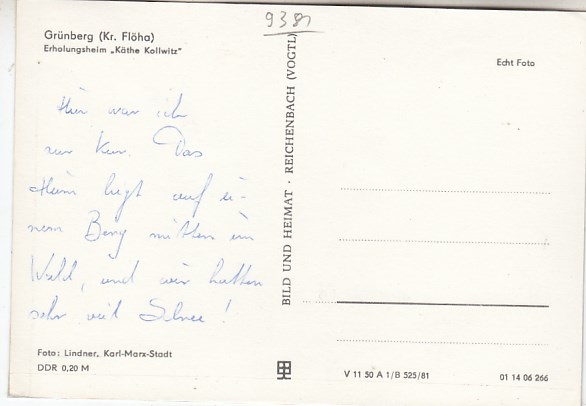 938
Grünberg (Kr. Flöha)
Erholungsheim „Käthe Kollwitz"
Echt Foto
Hier war ich
zur Kur. Das
Heim liegt auf ei-
nem Berg mitten im
Wald, und wir hatten
sehr viel Schnee!
BILD UND HEIMAT · REICHENBACH (VOGTL)
Foto: Lindner, Karl-Marx-Stadt
DDR 0,20 M
V 11 50 A 1/B 525/81
01 14 06 266